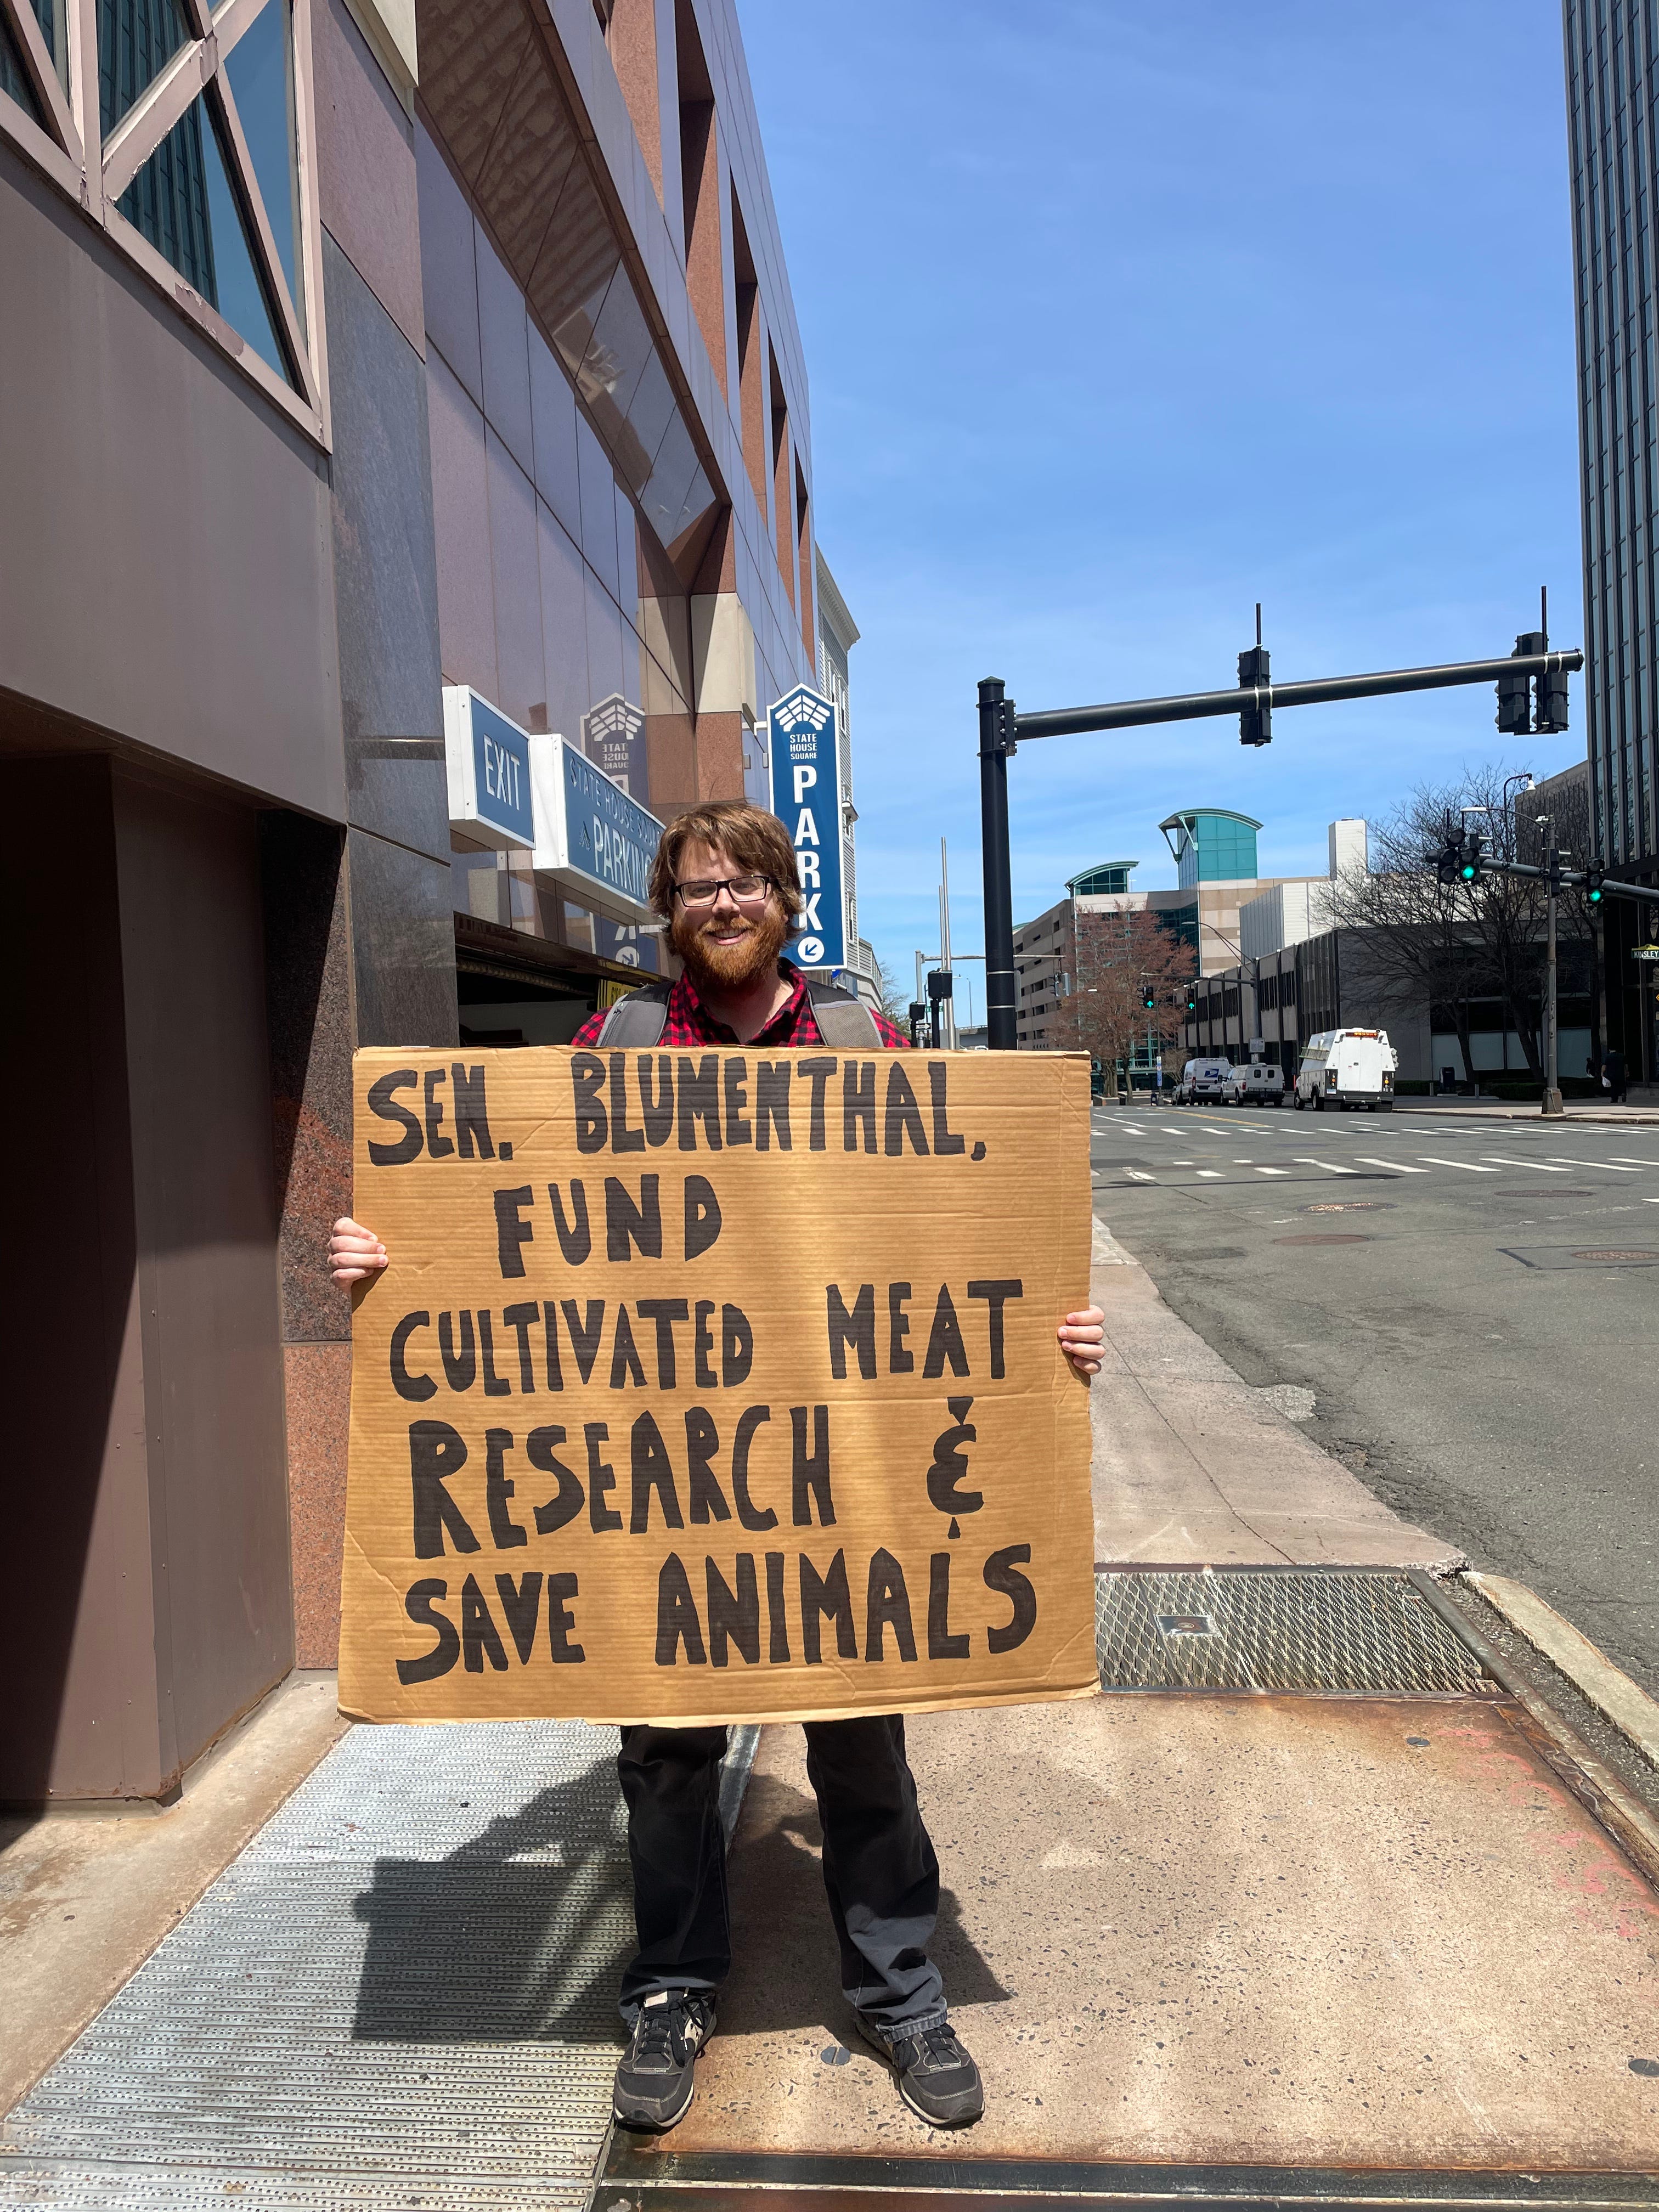 EXIT
STATE HOUSE SQUARE
PARKING
STATE
HOUSE
SQUARE
PARK
KINSLEY
SEN. BLUMENTHAL,
FUND
CULTIVATED MEAT
RESEARCH &
SAVE ANIMALS